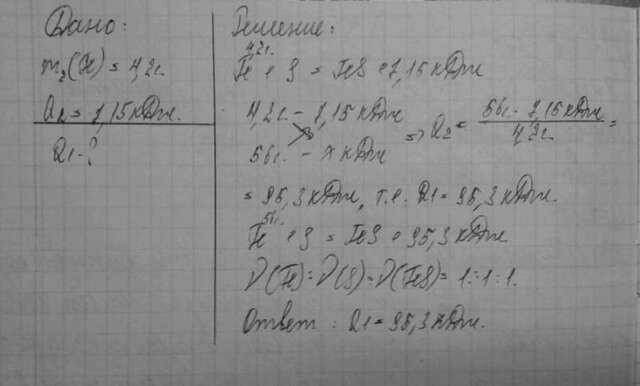 Дано:
m₂(Fe) = 4,2г.
Q₂ = 7,15кДж.
Q1 - ?
Решение:
4,2г.
Fe + S = FeS + 7,15кДж
4,2г. – 7,15кДж
56г. – x кДж
=> Q₂ = 56г. · 7,15кДж / 4,2г. =
= 95,3кДж, т.е. Q1 = 95,3кДж.
56г.
Fe + S = FeS + 95,3кДж
ν(Fe):ν(S):ν(FeS) = 1:1:1.
Ответ: Q1 = 95,3кДж.